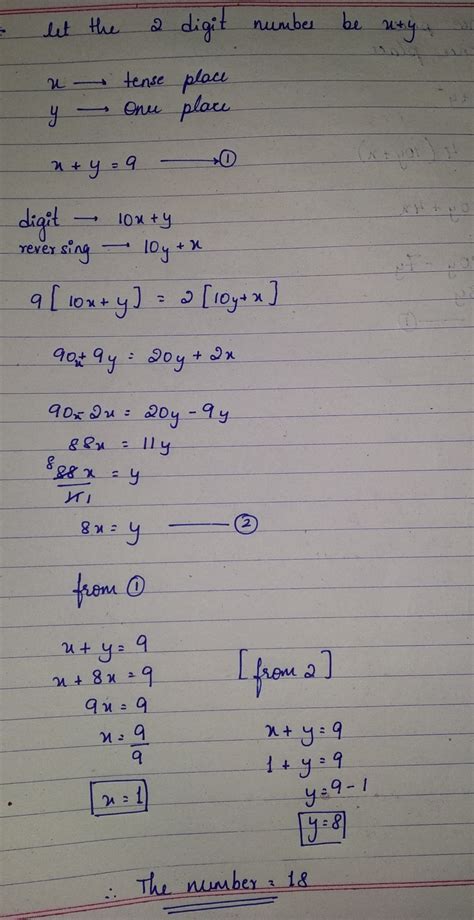 let the 2 digit number be x+y
x → tense place
y → one place
x + y = 9 → ①
digit → 10x + y
reversing → 10y + x
9 [10x + y] = 2 [10y + x]
90x + 9y = 20y + 2x
90x - 2x = 20y - 9y
88x = 11y
8 88x / 11 1 = y
8x = y — ②
from ①
x + y = 9
x + 8x = 9
9x = 9
x = 9/9
x = 1
[from 2]
x + y = 9
1 + y = 9
y = 9 - 1
y = 8
∴ The number = 18